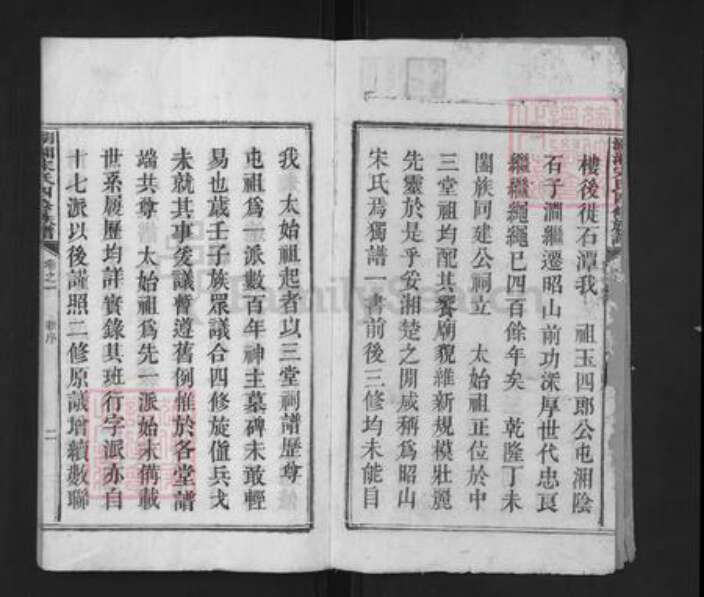 樓後徙石潭我 祖玉四郎公屯湘陰
石子澗繼遷昭山前功深厚世代忠良
繼繼繩繩已四百餘年矣 乾隆丁未
闔族同建公祠立 太始祖正位於中
三堂祖均配其饗廟貌維新規模壯麗
先靈於是乎妥湘楚之閒咸稱爲昭山
宋氏焉獨譜一書前後三修均未能自
我 太始祖起者以三堂祠譜歷尊
屯祖爲一派數百年神主墓碑未敢輕
易也歲壬子族眾議合四修旋值兵戈
未就其事爰議暫遵舊例惟於各堂譜
端共尊 太始祖爲先一派始末備載
世系履歷均詳實錄其班行字派亦自
十七派以後謹照二修原議增續數聯
卷之一
新序
二
FamilySearch